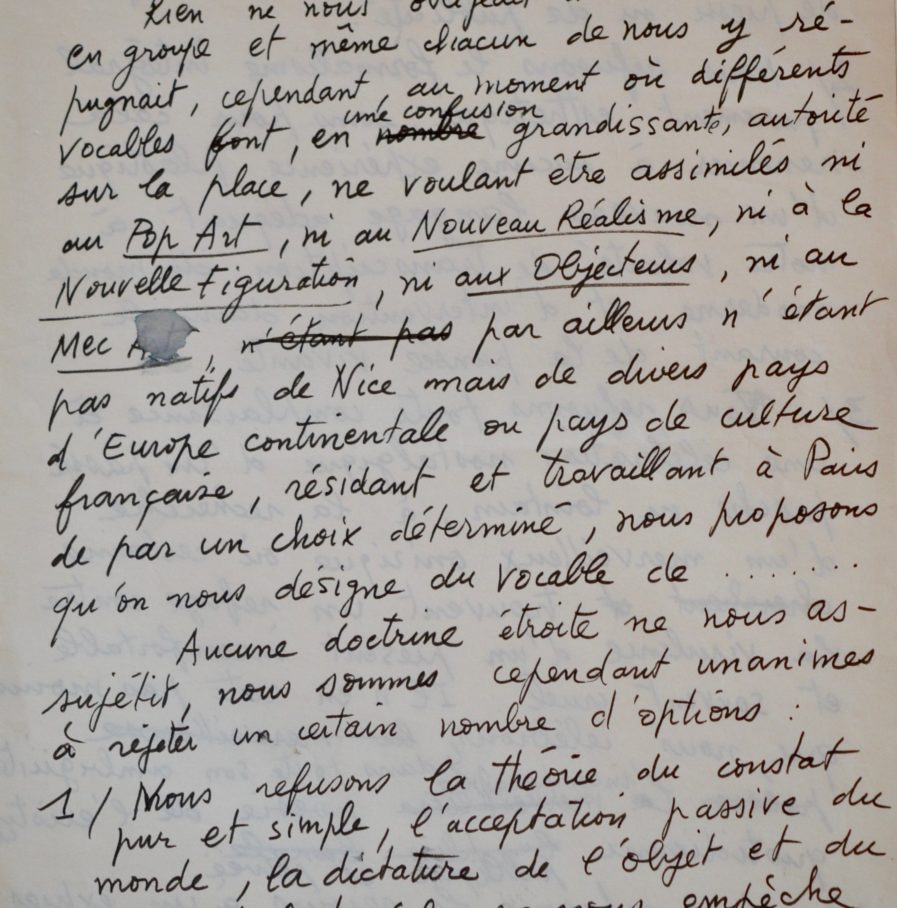 Rien ne nous
en groupe et même chacun de nous y ré-
pugnait, cependant, au moment où différents
une confusion
vocables font, en nombre grandissante, autorité
sur la place, ne voulant être assimilés ni
au Pop Art, ni au Nouveau Réalisme, ni à la
Nouvelle Figuration, ni aux Objecteurs, ni au
Mec A , n'étant pas par ailleurs n'étant
pas natifs de Nice mais de divers pays
d'Europe continentale ou pays de culture
française, résidant et travaillant à Paris
de par un choix déterminé, nous proposons
qu'on nous désigne du vocable de ........
Aucune doctrine etroite ne nous as-
sujétit, nous sommes cependant unanimes
à rejeter un certain nombre d'options :
1/ Nous refusons la théorie du constat
pur et simple, l'acceptation passive du
monde, la dictature de l'objet et du
empêche